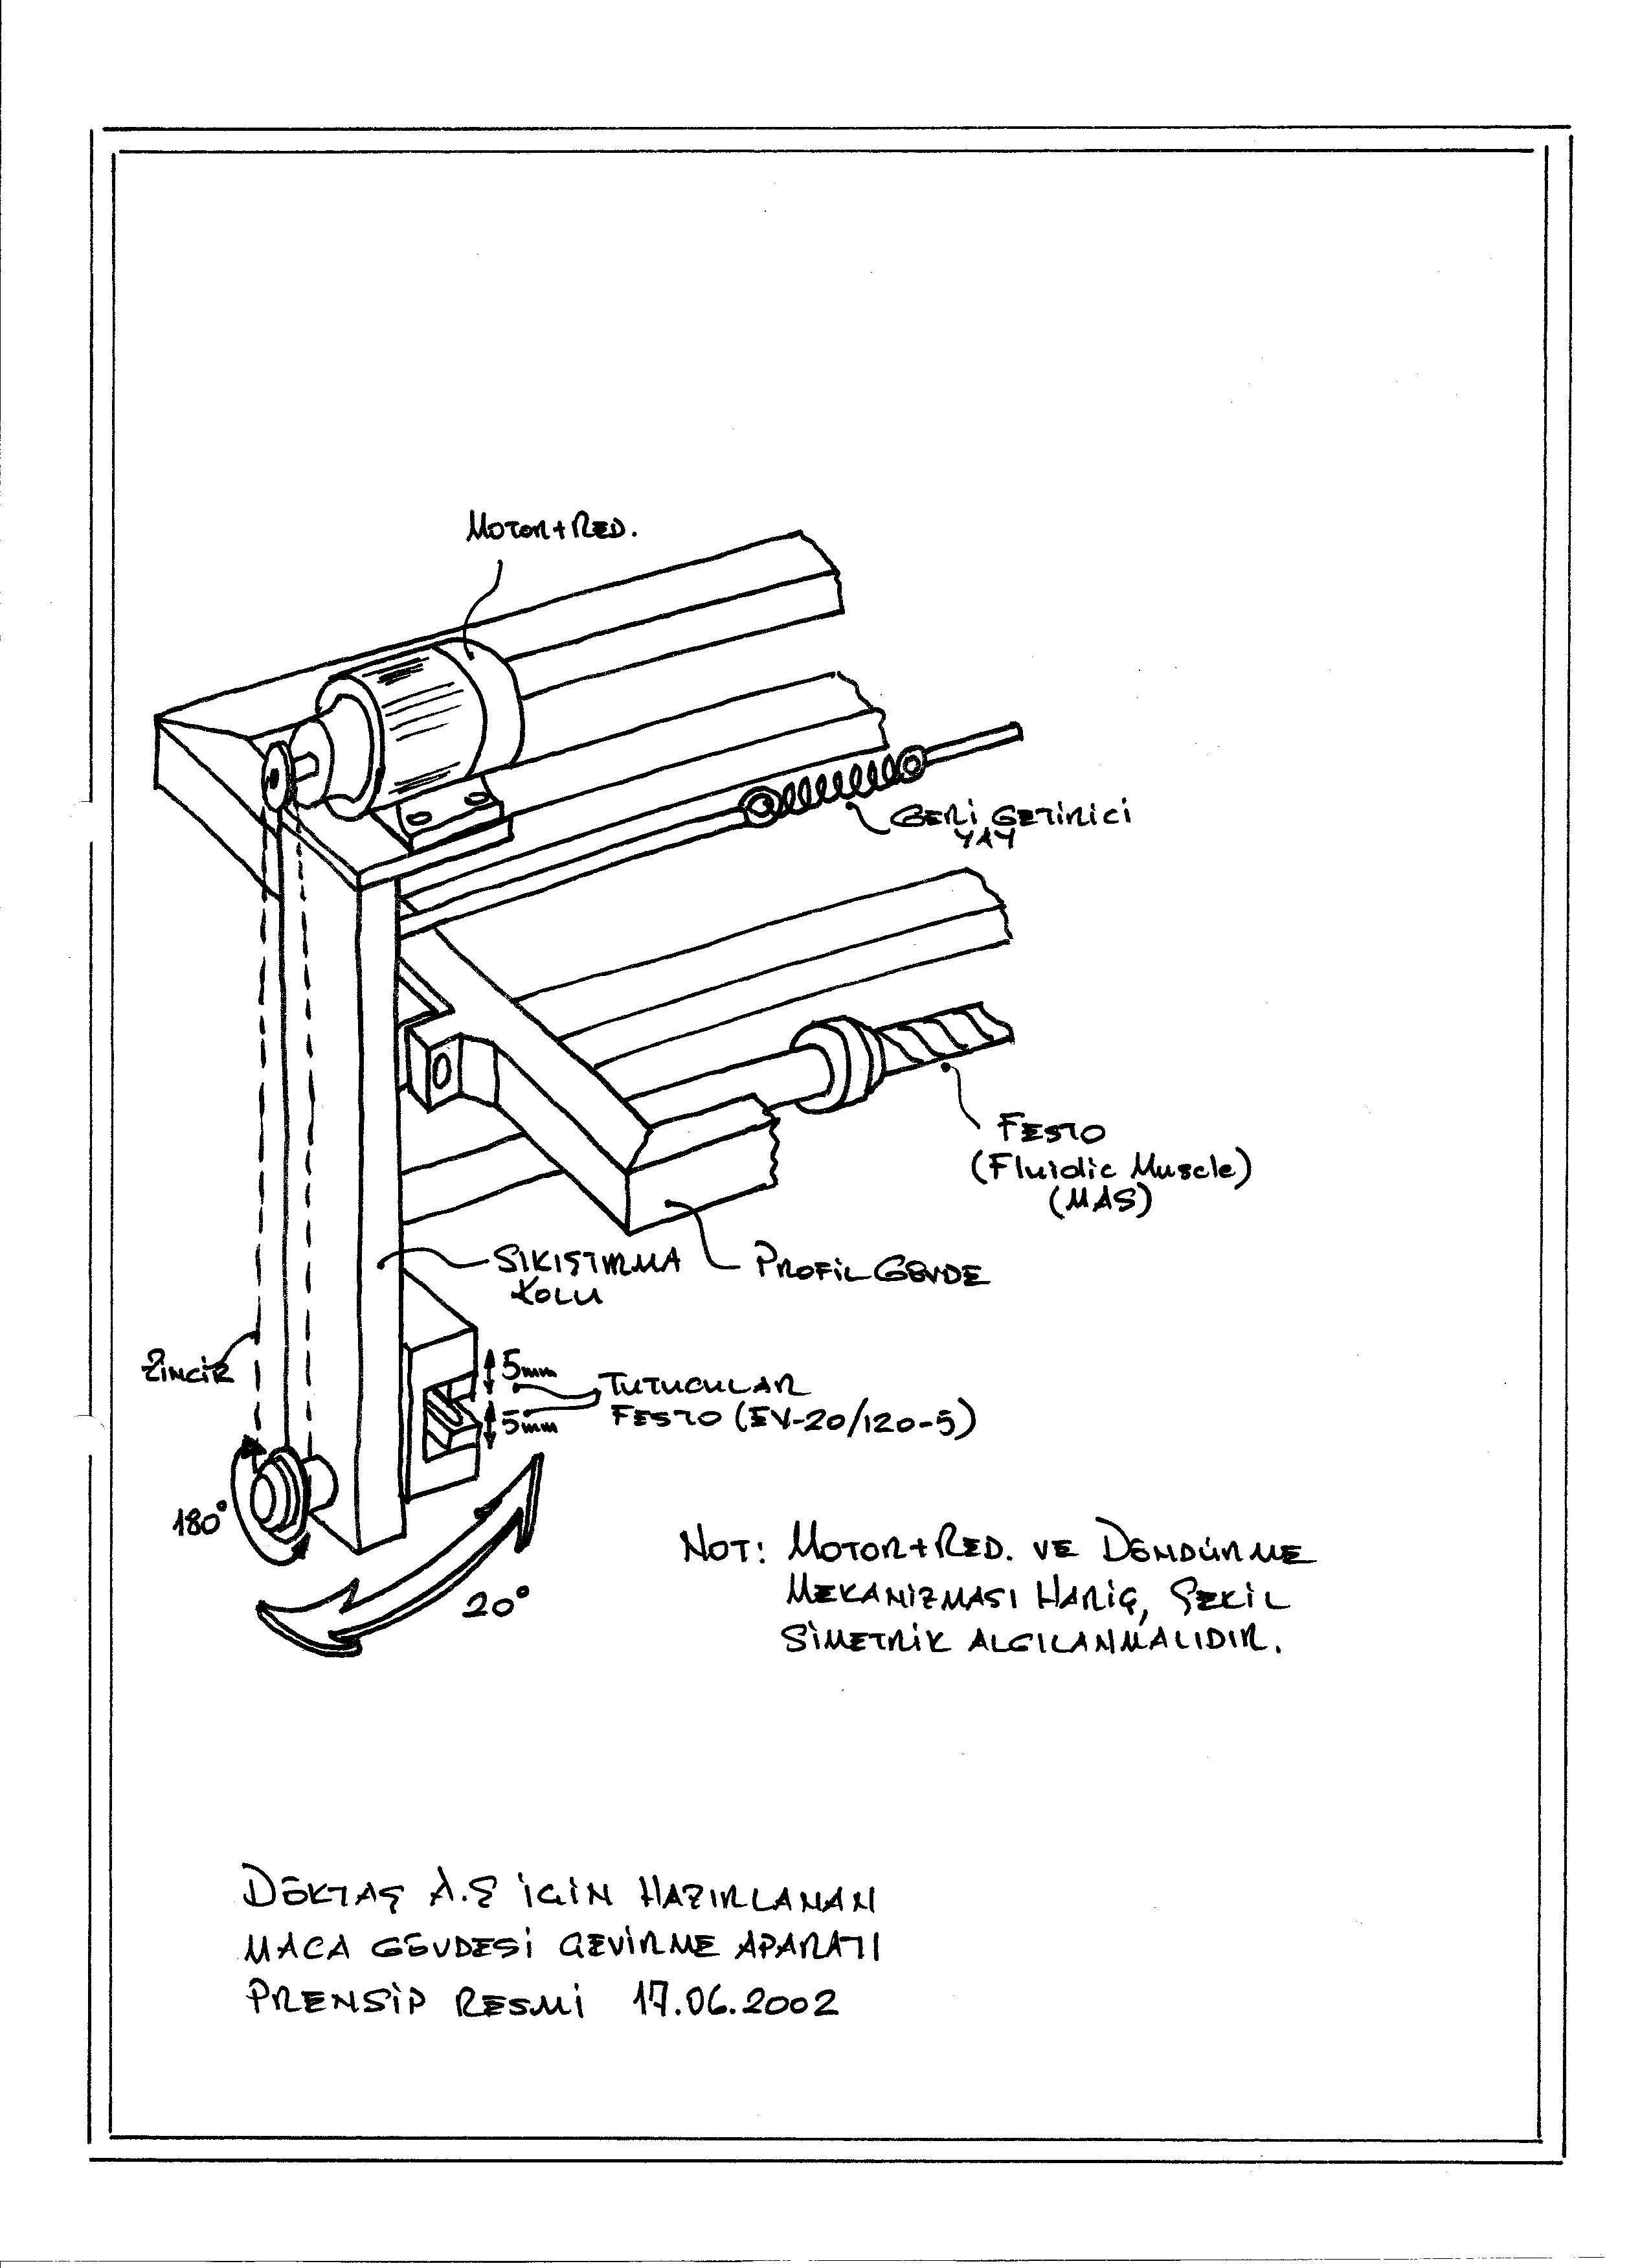 MOTOR+RED.
GERİ GETİRİCİ
YAY
FESTO
(Fluidic Muscle)
(MAS)
SIKIŞTIRMA
KOLU
PROFİL GÖVDE
ZİNCİR
5mm
5mm
TUTUCULAR
FESTO (EV-20/120-5)
180°
20°
NOT: MOTOR+RED. VE DÖNDÜRME
MEKANİZMASI HARİÇ, ŞEKİL
SİMETRİK ALGILANMALIDIR.
DÖKTAŞ A.Ş İÇİN HAZIRLANAN
MACA GÖVDESİ ÇEVİRME APARATI
PRENSİP RESMİ 17.06.2002